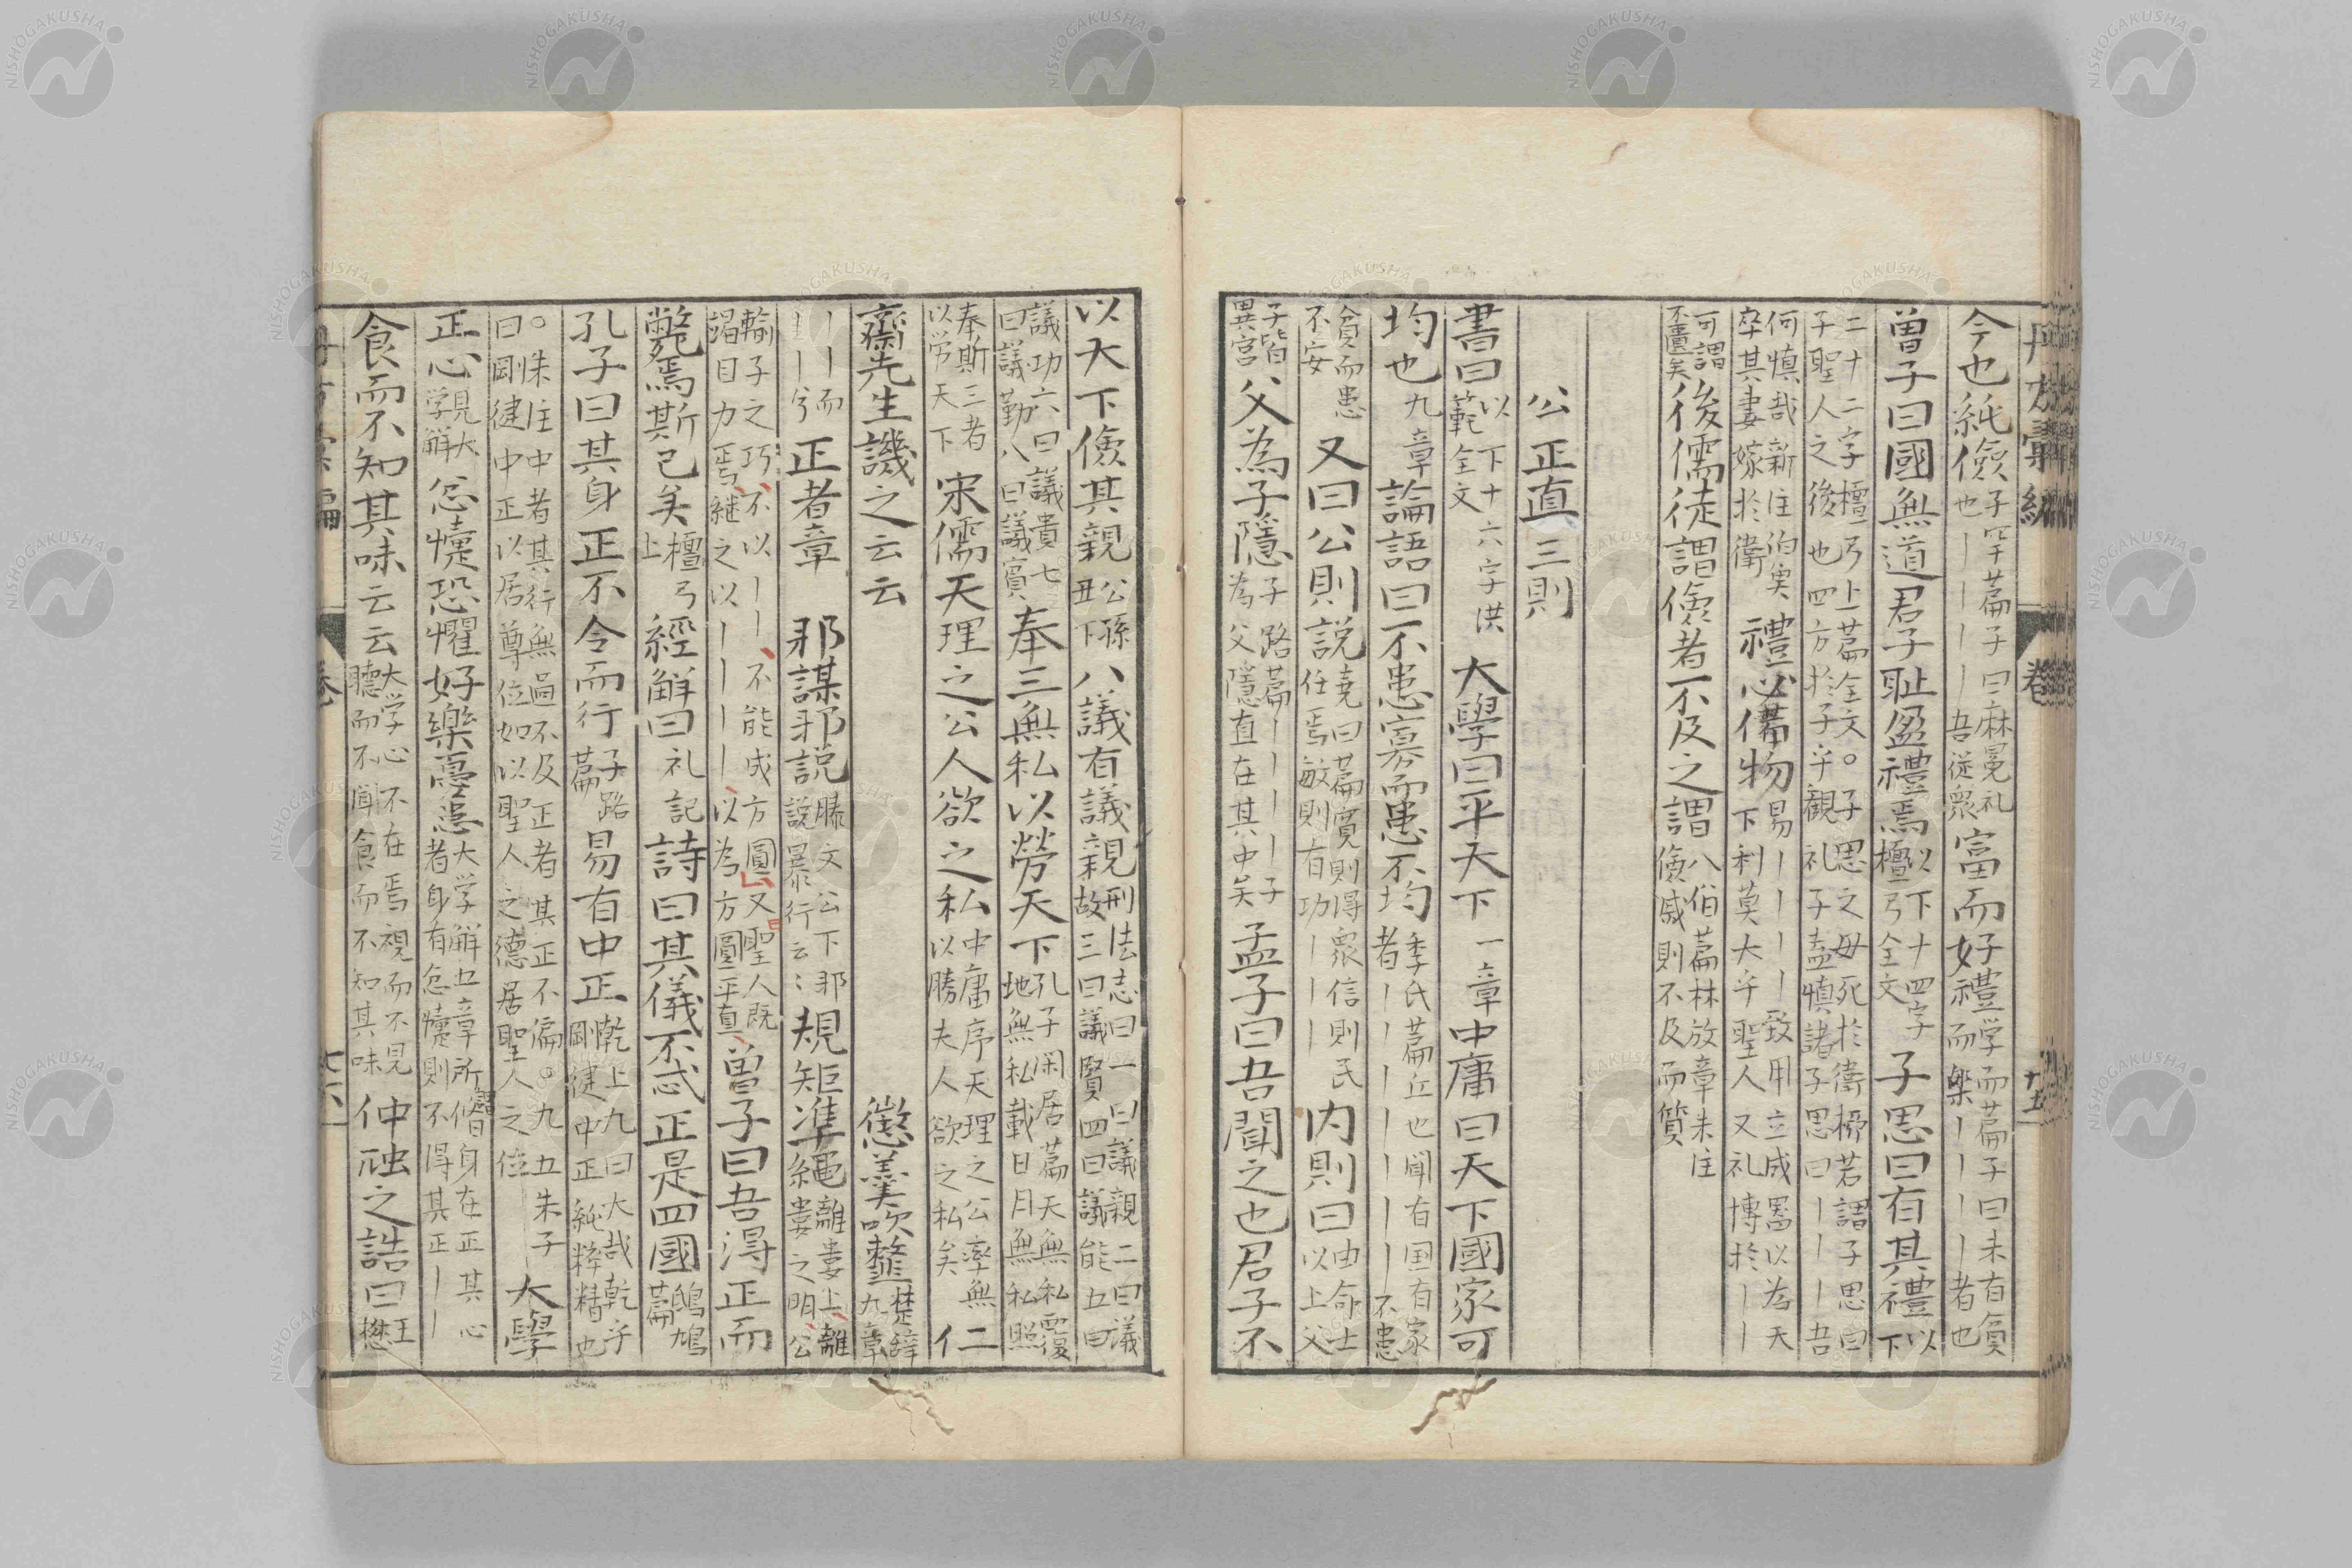 今也純儉子罕篇子曰麻冕礼也｜｜｜｜吾従衆富而好禮学而篇子曰未有貧而樂｜｜｜｜者也
曽子曰國無道君子耻盈禮焉以下十四字檀弓全文子思曰有其禮以下
二十二字檀弓上篇全文○子思之母死於衛栁若謂子思曰子聖人之後也四方於子乎觀礼子盍慎諸子思曰｜｜｜吾
何慎哉新注伯奥卒其妻嫁於衛禮必備物易｜｜｜｜致用立成噐以為天下利莫大乎聖人又礼博於｜｜
可謂不匱矣後儒徒謂儉者不及之謂八佾篇林放章朱注儉戚則不及而質
公正直三則
書曰以下十六字洪範全文大學曰平天下一章中庸曰天下國家可
均也九章論語曰不患寡而患不均季氏篇丘也聞有国有家者｜｜｜｜｜｜不患
貧而患不安又曰公則説堯曰篇寛則得衆信則民任焉敏則有功｜｜｜内則曰由命士以上父
子皆異宮父為子隱子路篇｜｜｜｜子為父隱直在其中矣孟子曰吾聞之也君子不
以天下儉其親公孫丑下八議有議親刑法志曰一曰議親二曰議故三曰議賢四曰議能五曰
議功六曰議貴七曰議勤八曰議賓奉三無私以勞天下孔子閑居篇天無私覆地無私載日月無私照
奉斯三者以労天下宋儒天理之公人欲之私中庸序天理之公率無以勝夫人欲之私矣仁
齋先生譏之云云懲羹吹韲楚辞九章
｜｜而｜｜兮正者章邪謀邪説滕文公下邪説暴行云〻規矩準縄離婁上離婁之明公
輸子之巧不以｜｜不能成方圓又曰聖人既竭目力焉継之以｜｜｜｜以為方圓平直曽子曰吾得正而
斃焉斯已矣檀弓上經解曰礼記詩曰其儀不忒正是四國鳲鳩篇
孔子曰其身正不令而行子路篇易有中正乾上九曰大哉乾乎剛健中正純粹精也
○朱注中者其行無過不及正者其正不偏○九五朱子曰剛健中正以居尊位如以聖人之德居聖人之位大學
正心見大学解忿懥恐懼好樂憂患大学解五章所謂脩身在正其心者身有忿懥則不得其正｜｜
食而不知其味云云大学心不在焉視而不見聴而不聞食而不知其味仲虺之誥曰王懋